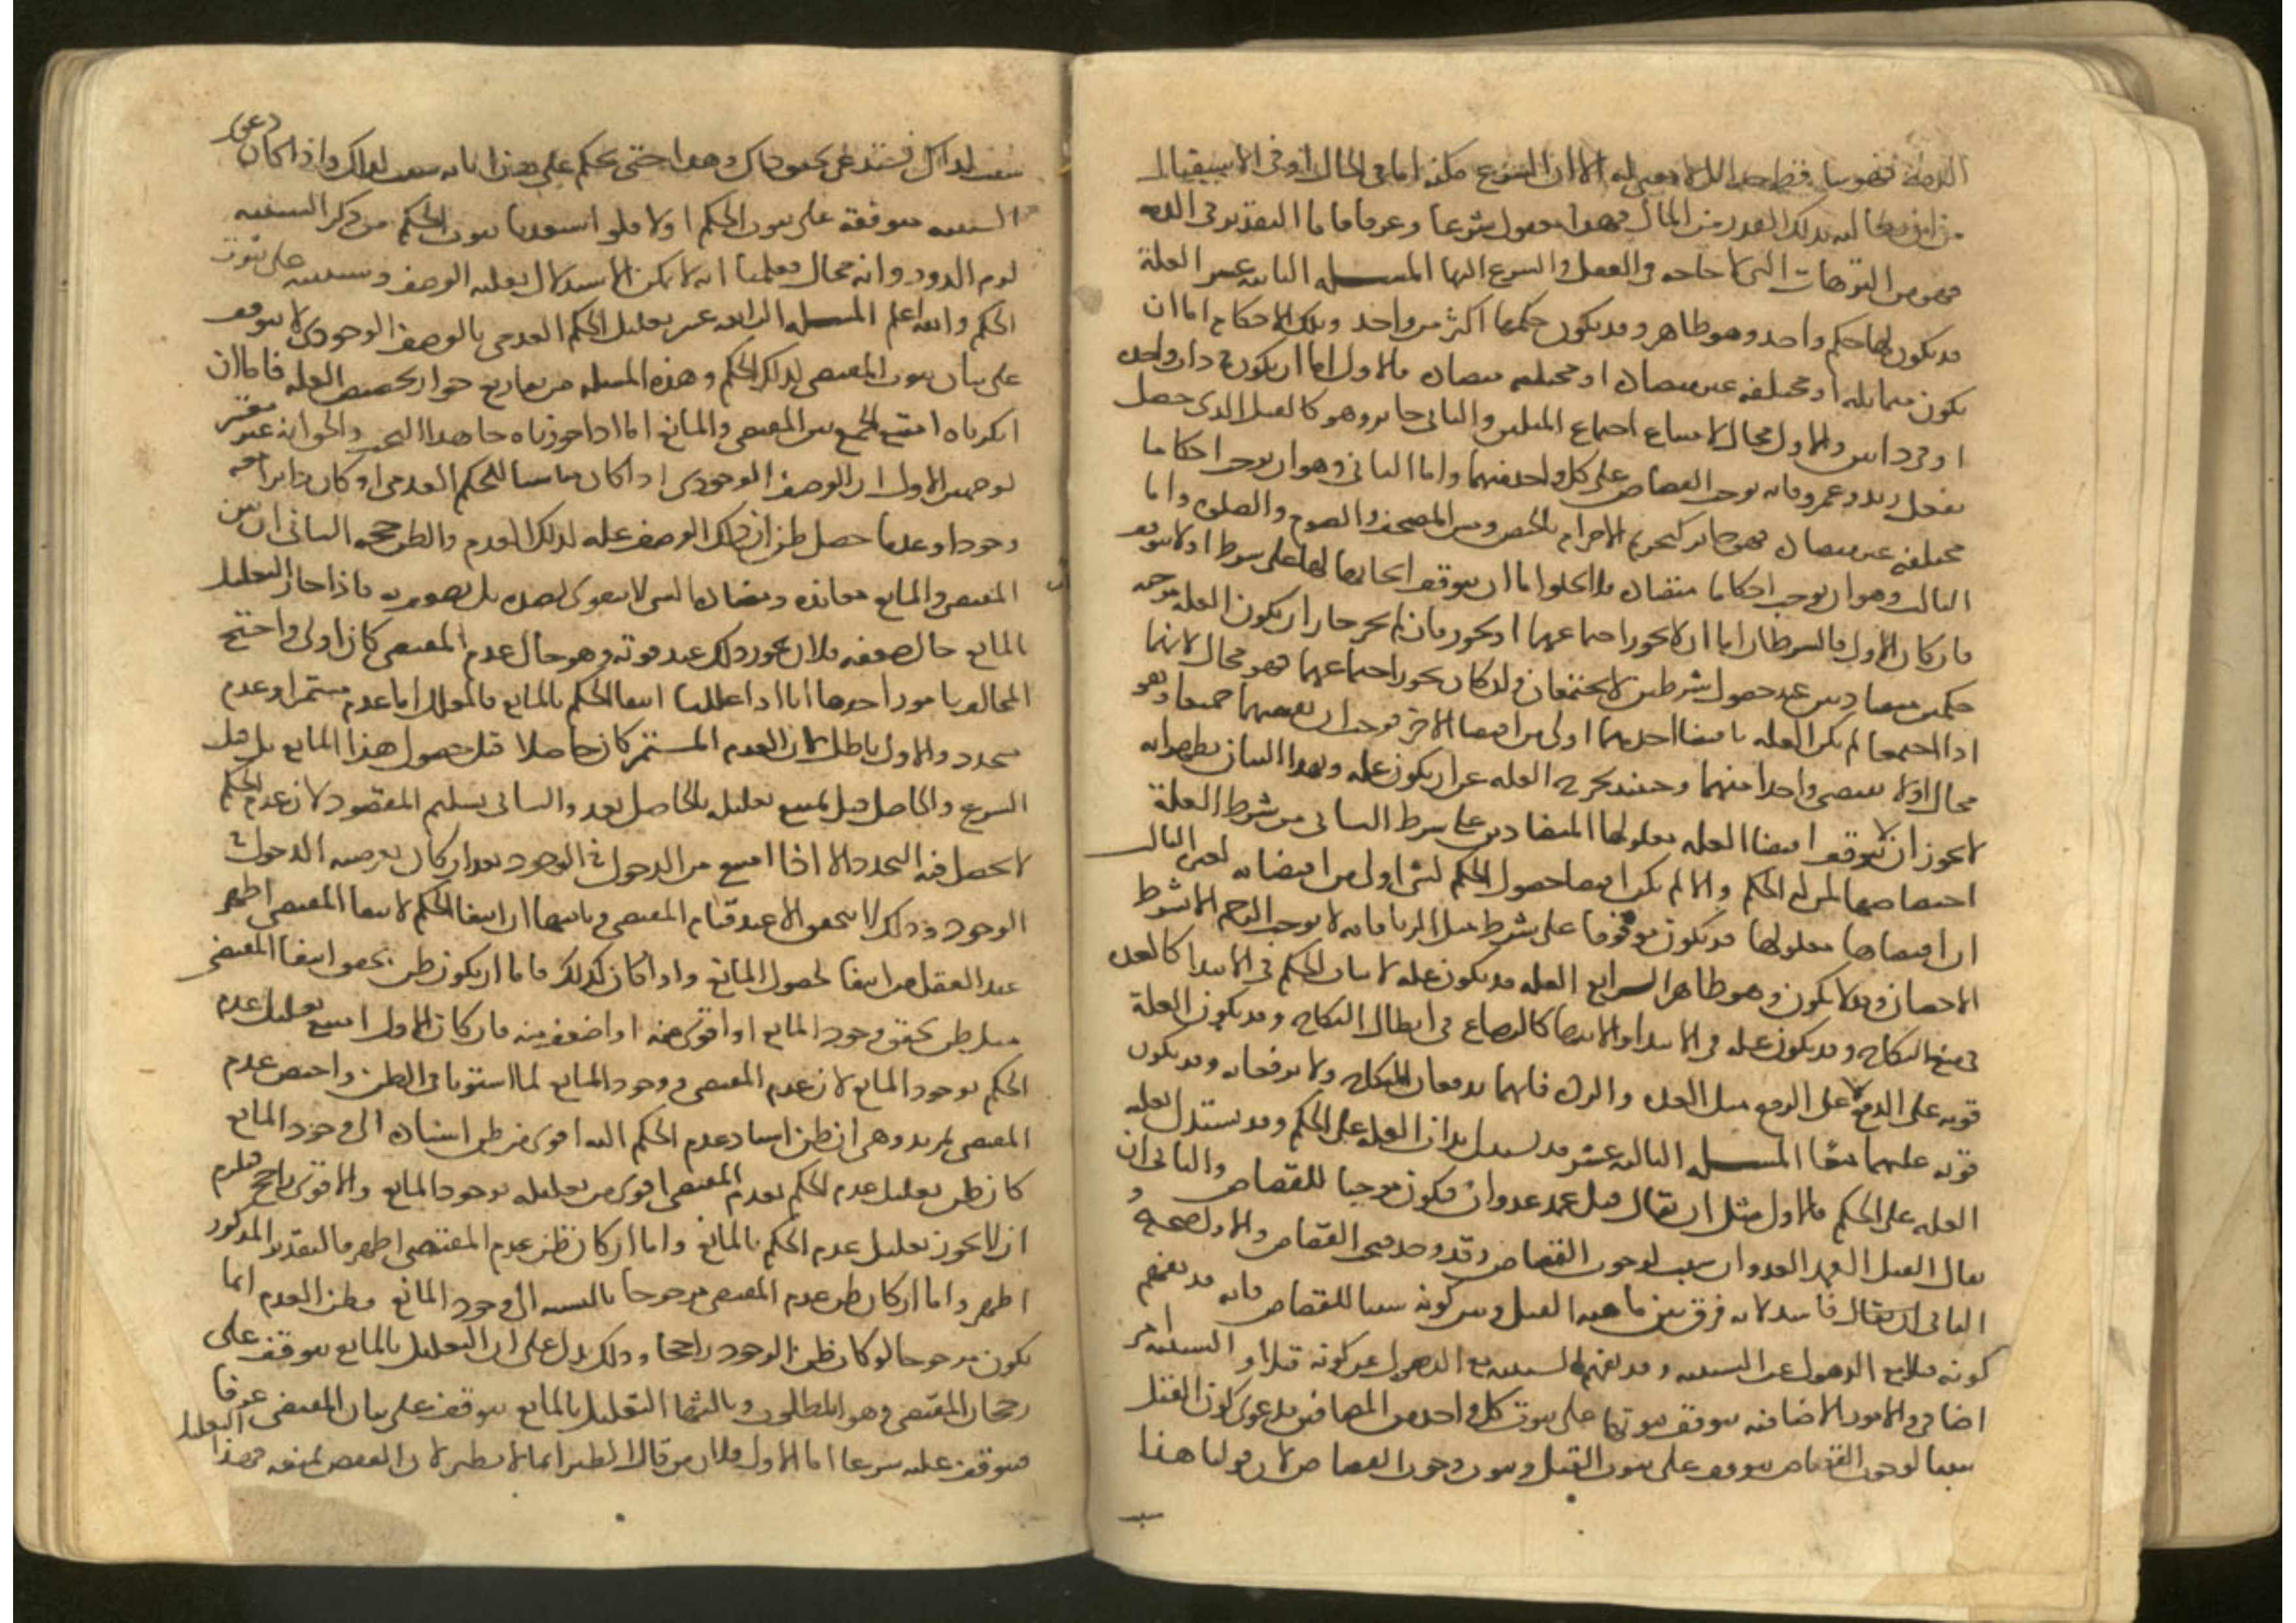 الذمة فهو ساقط جدا لانه لا معنى له الا ان الشرع مكنه اما في الحال او في الاستقبال
من ان يطالبه بذلك القدر من المال فهذا معقول شرعا وعرفا فاما التقدير في الذمه
فهو من الترهات التى لا حاجه في العقل والشرع اليها المسـله الثانيه عشر العلة
قد يكون لها حكم واحد وهو ظاهر وقد يكون حكمها اكثر من واحد وتلك الاحكام اما ان
يكون متماثله او مختلفه غير متضاده او مختلفه متضاده فالاول اما ان يكون في ذات واحده
او في ذاتين والاول محال لامتناع اجتماع المثلين والثانى جائز وهو كالقتل الذى حصل
بفعل زيد وعمرو فانه يوجب القصاص على كل واحد منهما واما الثانى وهو ان يوجب احكاما
مختلفه غير متضاده فهو جائز كتحريم الاحرام بالحيض ومس المصحف والصوم والصلوه واما
الثالث وهو ان يوجب احكاما متضاده فلا يخلوا اما ان يتوقف ايجابها لها على شرط او لا يتوقف
فان كان الاول فالشرطان اما ان لا يجوز اجتماعهما او يجوز فان لم يجز جاز ان يكون العله موجبه
حكمين متضادين عند حصول شرطين لا يجتمعان وان كان يجوز اجتماعهما فهو محال لانهما
اذا اجتمعا لم يكن العله باقتضا احديهما اولى من اقتضا الاخر فوجب ان تقتضيهما جميعا وهو
محال او لا تقتضى واحدا منهما وحينئذ يخرج العله عن ان يكون عله وبهذا البيان يظهر انه
لا يجوز ان لا يتوقف اقتضا العله معلولها المتضادين على شرط الثانى من شرط العلة
اختصاصها بمن له الحكم والا لم يكن اقتضا حصول الحكم لشى اولى من اقتضائه لغيره الثالث
ان اقتضاها معلولها قد يكون موقوفا على شرط مثل الزنا فانه لا يوجب الرجم الا بشرط
الاحصان وقد لا يكون وهو ظاهر الـرابع العله قد يكون عله لاثبات الحكم في الابتدا كالعده
في منع النكاح وقد يكون عله في الابتدا والانتها كالرضاع في ابطال النكاح وقد يكون العلة
قويه على الدفع لا على الرفع مثل العده والرده فانهما يدفعان النكاح ولا يرفعانه وقد يكون
قويه عليهما معا المسـله الثالثه عشر قد يستدل بذات العله على الحكم وقد يستدل بعليه
العله على الحكم فالاول مثل ان يقال قتل عمد عدوان فيكون موجبا للقصاص والثانى ان
يقال القتل العمد العدوان سبب لوجوب القصاص وقد وجد فيجب القصاص والاول صحيح و
الثانى ان يقال فاسد لانه فرق بين ماهيه القتل وبين كونه سببا للقصاص فانه قد يفهم
كونه قتلا مع الذهول عن السببيه وقد يفهم السببيه مع الذهول عن كونه قتلا و السببيه امر
اضافي والامور الاضافيه يتوقف ثبوتها على ثبوت كل واحد من المضافين فدعوى كون القتل
سببا لوجوب القصاص يتوقف على ثبوت القتل وثبوت وجوب القصاص لان قولنا هذا
سبب
سبب لذاك يستدعى تحقق ذاك وهذا حتى يحكم على هذا بانه سبب لذاك واذا كان دعوى
السببيه متوقفه على ثبوت الحكم اولا فلو استفدنا ثبوت الحكم من ذكر السببيه
لزم الدور وانه محال فعلمنا انه لا يمكن الاستدلال بعليه الوصف وسببيته على ثبوت
الحكم والله اعلم المسـله الرابعه عشر تعليل الحكم العدمى بالوصف الوجودى لا يتوقف
على بيان ثبوت المقتضى لذلك الحكم وهذه المسله من تفاريع جواز تخصيص العله فانا ان
انكرناه امتنع الجمع بين المقتضى والمانع اما اذا جوزناه جا هذا البحث والحق انه غير معتبر
لوجهين الاول ان الوصف الوجودى اذا كان مناسبا للحكم العدمى او كان دائرا معه
وجودا وعدما حصل ظن ان ذلك الوصف عله لذلك العدم والظن حجه الثانى ان بين
المقتضى والمانع معانده ومضاده والشى لا يتقوى بضده بل يضعف به فاذا جاز التعليل
بالمانع حال ضعفه فلان يجوز ذلك عند قوته وهو حال عدم المقتضى كان اولى واحتج
المخالف بامور احدها انا اذا عللنا انتفا الحكم بالمانع فالمعلل اما عدم مستمر او عدم
متجدد والاول باطل لان العدم المستمر كان حاصلا قبل حصول هذا المانع بل قبل
الشرع والحاصل قبل يمتنع تعليله بالحاصل بعد والثانى تسليم المقصود لان عدم الحكم
لا يحصل فيه التجدد الا اذا امتنع من الدخول في الوجود بعد ان كان بعرضيه الدخول في
الوجود وذلك لا يتحقق الا عند قيام المقتضى وثانيها ان انتفا الحكم لانتفا المقتضى اظهر
عند العقل من انتفا لحصول المانع واذا كان كذلك فاما ان يكون ظن تحقق انتفا المقتضى
مثل ظن تحقق وجود المانع او اقوى منه او اضعف منه فان كان الاول امتنع تعليل عدم
الحكم بوجود المانع لان عدم المقتضى ووجود المانع لما استويا في الظن واختص عدم
المقتضى بمزيد وهى ان ظن اسناد عدم الحكم اليه اقوى من ظن اسناده الى وجود المانع
كان ظن تعليل عدم الحكم بعدم المقتضى اقوى من تعليله بوجود المانع والاقوى راجح فلزم
ان لا يجوز تعليل عدم الحكم بالمانع واما ان كان ظن عدم المقتضى اظهر فالتقدير المذكور
اظهر واما ان كان ظن عدم المقتضى مرجوحا بالنسبه الى وجود المانع فظن العدم انما
يكون مرجوحا لو كان ظن الوجود راجحا وذلك يدل على ان التعليل بالمانع يتوقف على
رجحان المقتضى وهو المطلوب وثالثها التعليل بالمانع يتوقف على بيان المقتضى عرفا
فيتوقف عليه شرعا اما الاول فلان من قال الطير انما لا يطير لان القفص يمنعه فهذا التعليل